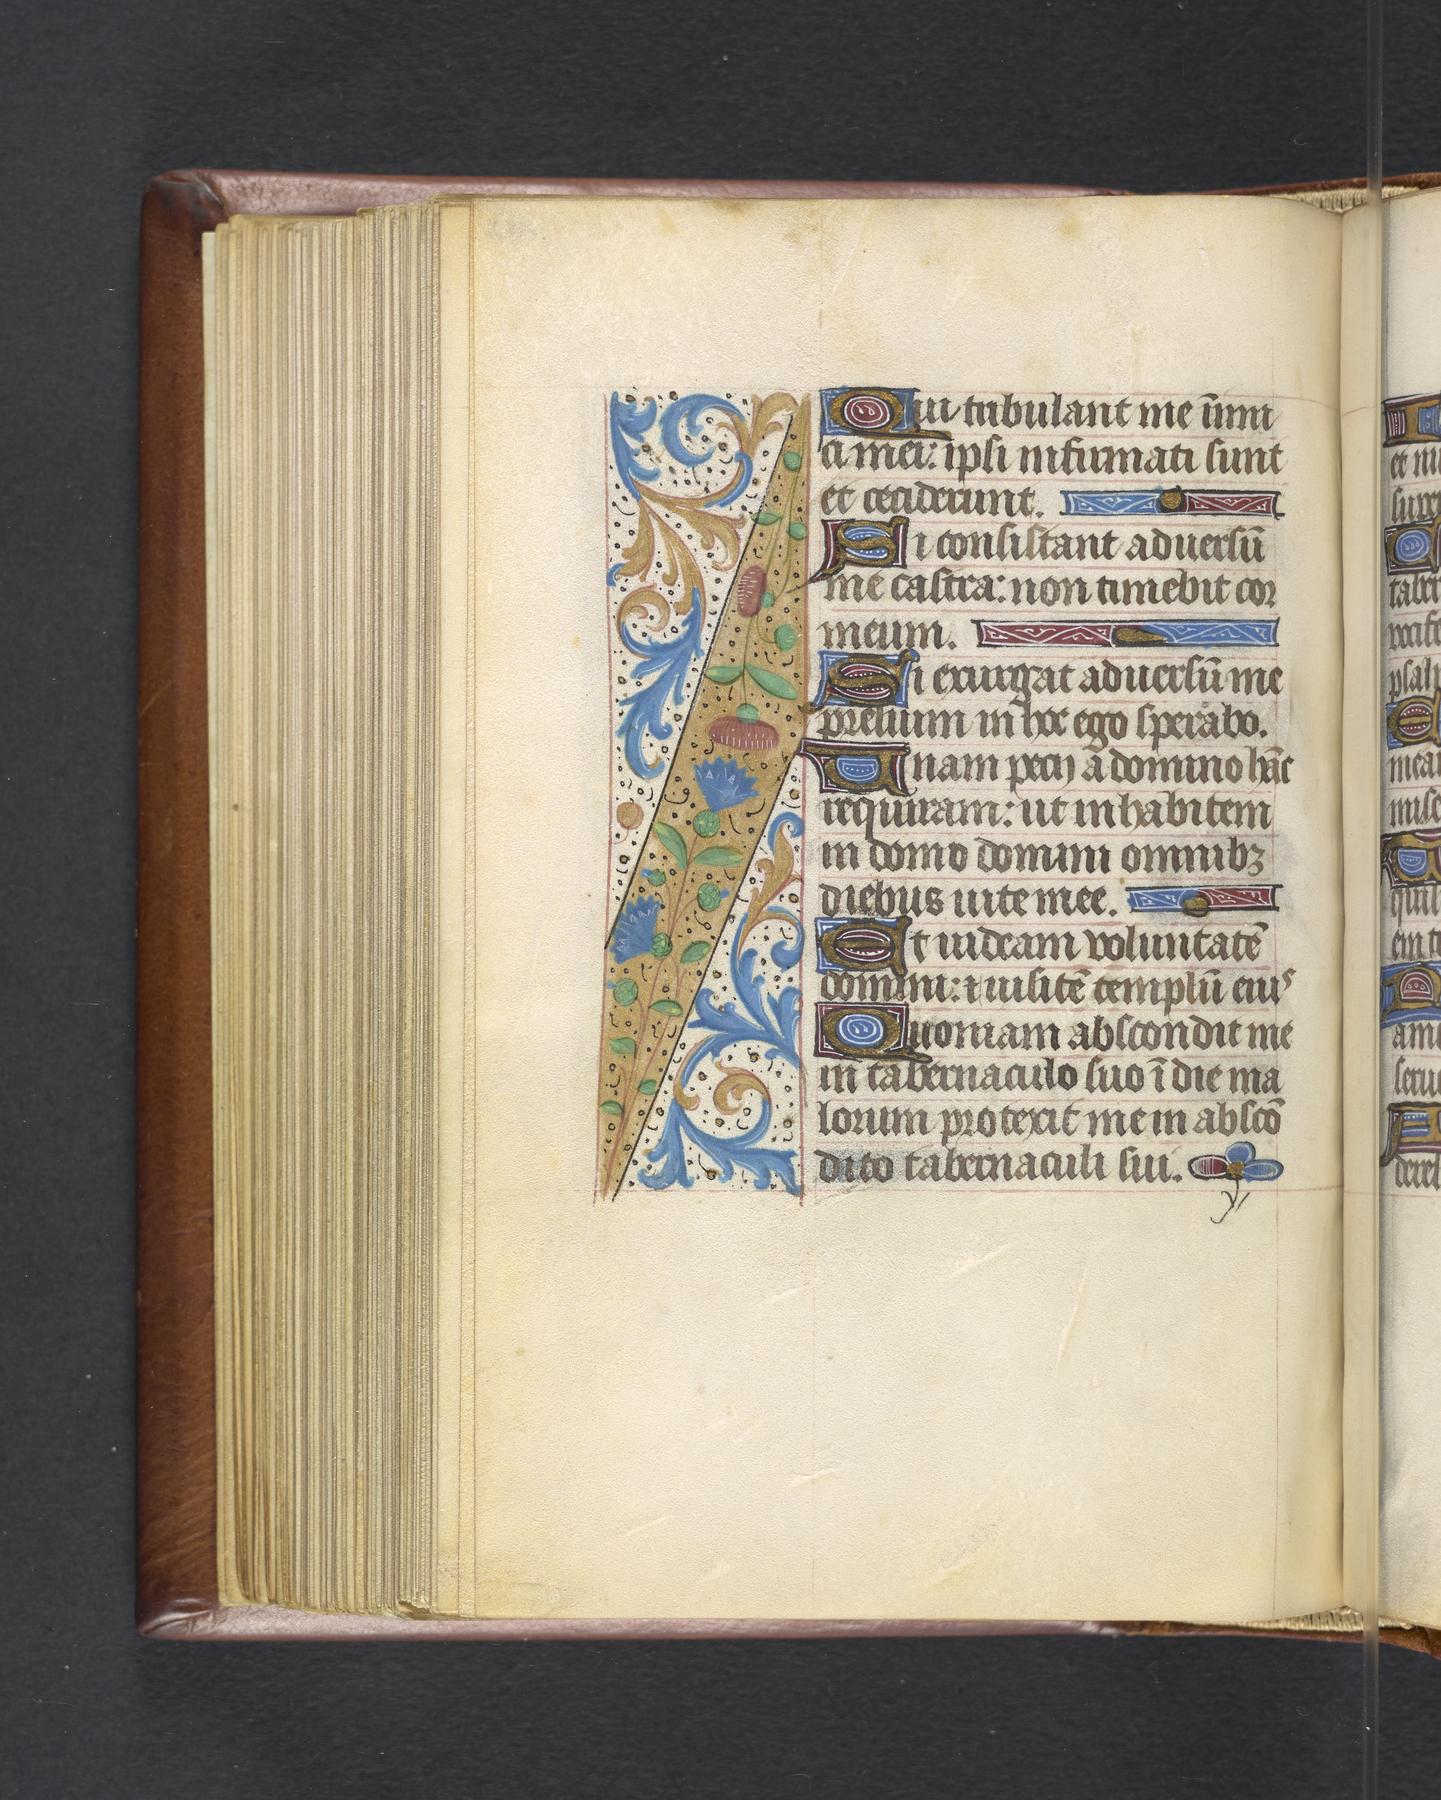 Qui tribulant me inimi
ci mei: ipsi infirmati sunt
et ceciderunt.
Si consistant aduersũ
me castra: non timebit cor
meum.
Si exurgat aduersũ me
prelium in hoc ego sperabo.
Unam pecij a domino hãc
requiram: ut inhabitem
in domo domini omnibꝫ
diebus uite mee.
Et uideam voluntatẽ
domini: ⁊ uisitẽ templũ eiuˢ
Quoniam abscondit me
in tabernaculo suo ĩ die ma
lorum protexit me in abscõ
dito tabernaculi sui.